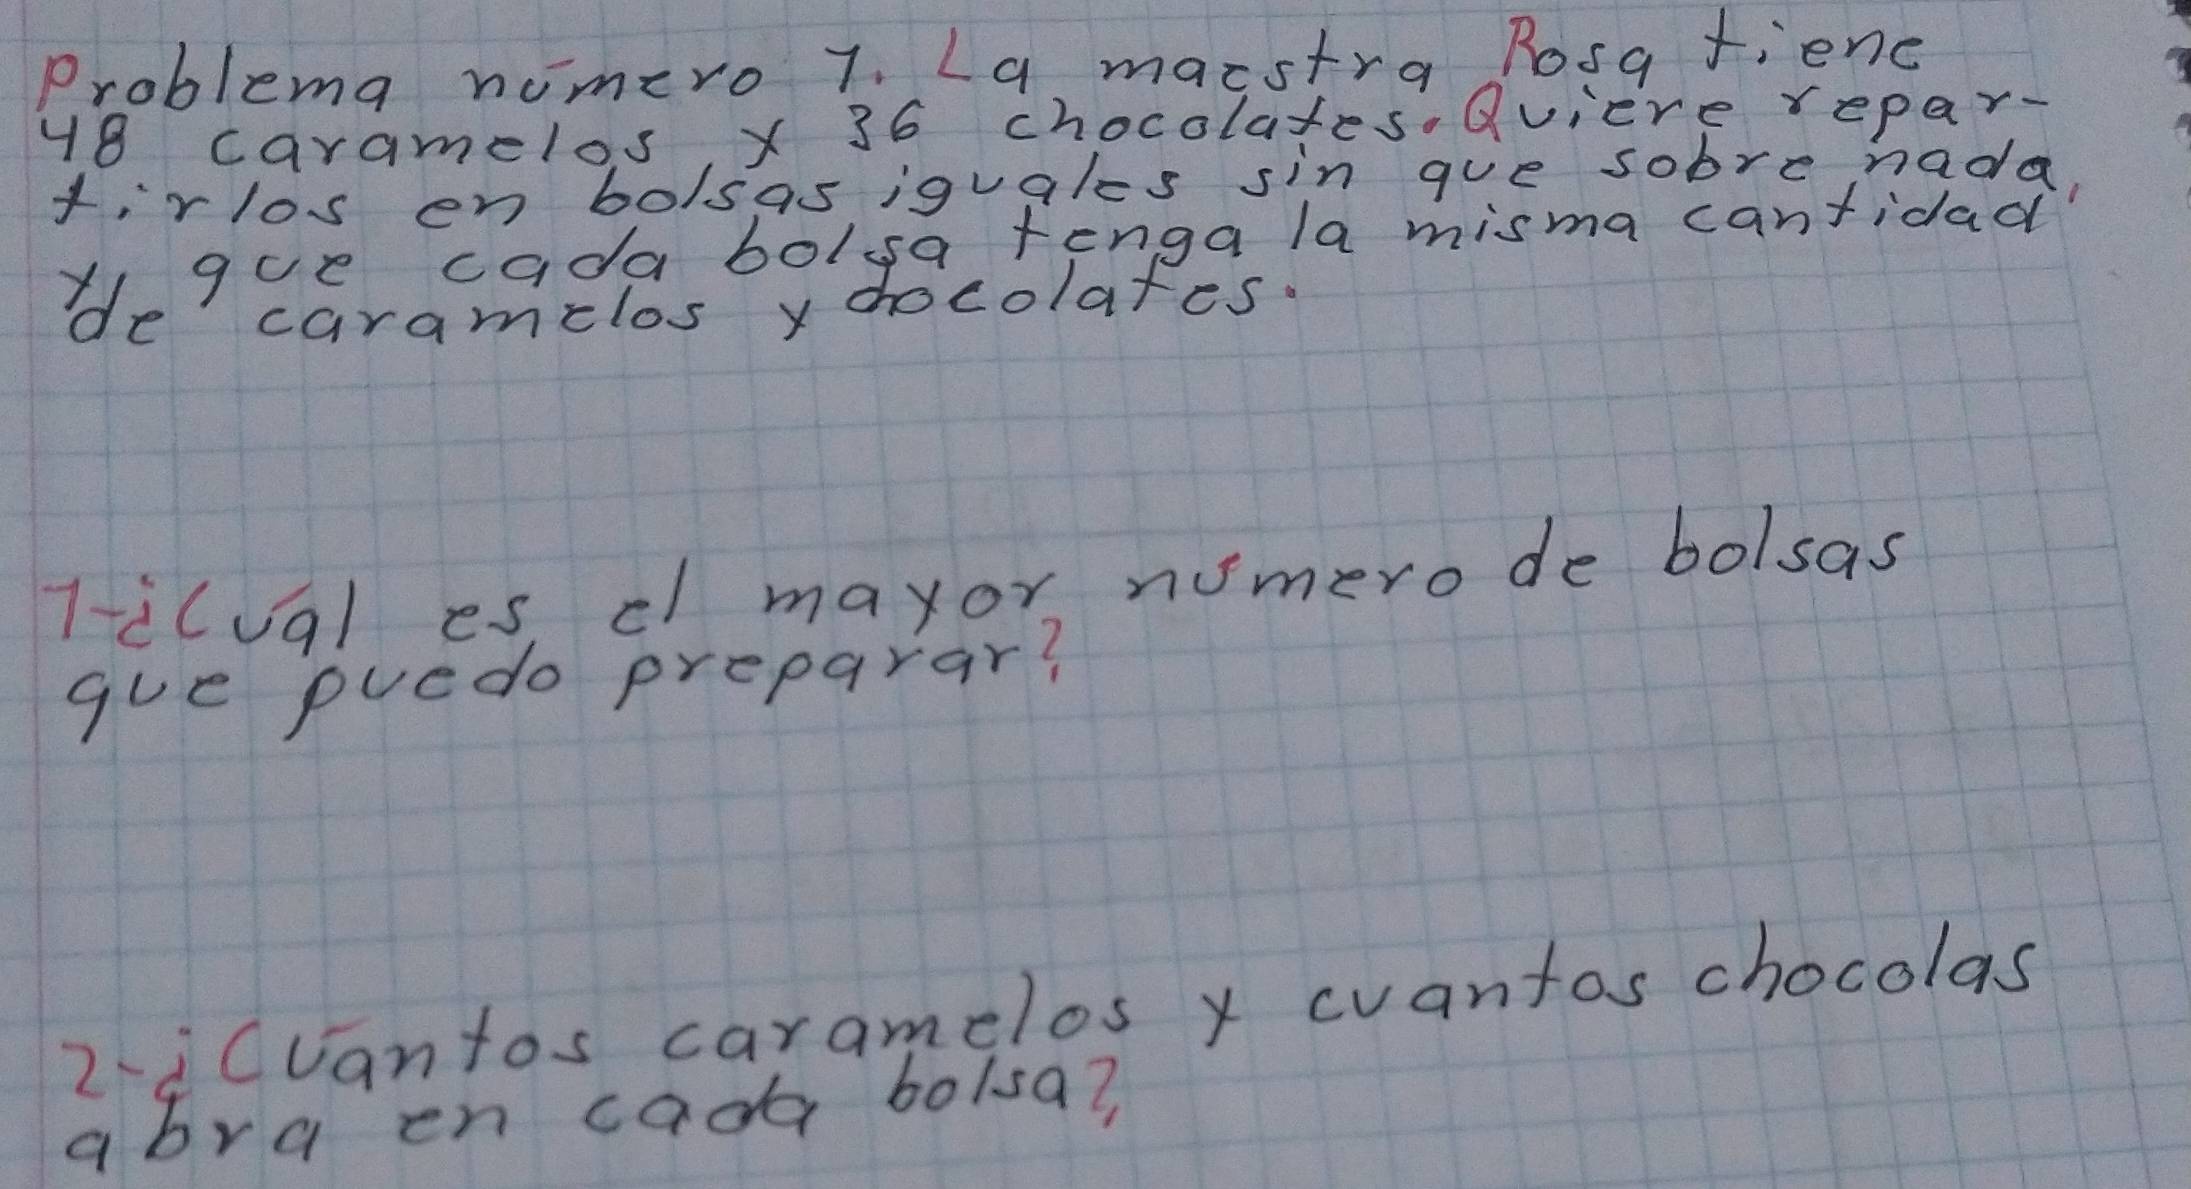 Problema número 1. La maestra Rosa tiene
48 caramelos y 36 chocolates. Quiere repar-
tirlos en bolsas iguales sin que sobre nada,
y que cada bolsa tenga la misma cantidad
de caramelos y chocolates.
1-¿Cuál es el mayor número de bolsas
que puedo preparar?
2-¿Cuántos caramelos y cuantos chocolas
abra en cada bolsa?